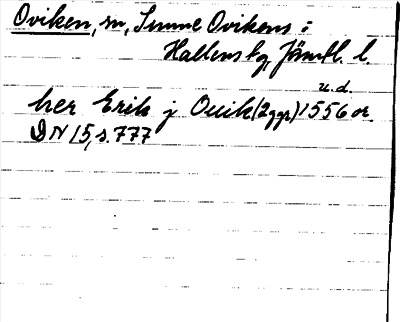 Oviken, sn, Sunne Ovikens o
Hallens tg, Jämtl. l.
u. d.
her Erik j Ouik (2ggr) 1556 or.
DN 15, s. 777